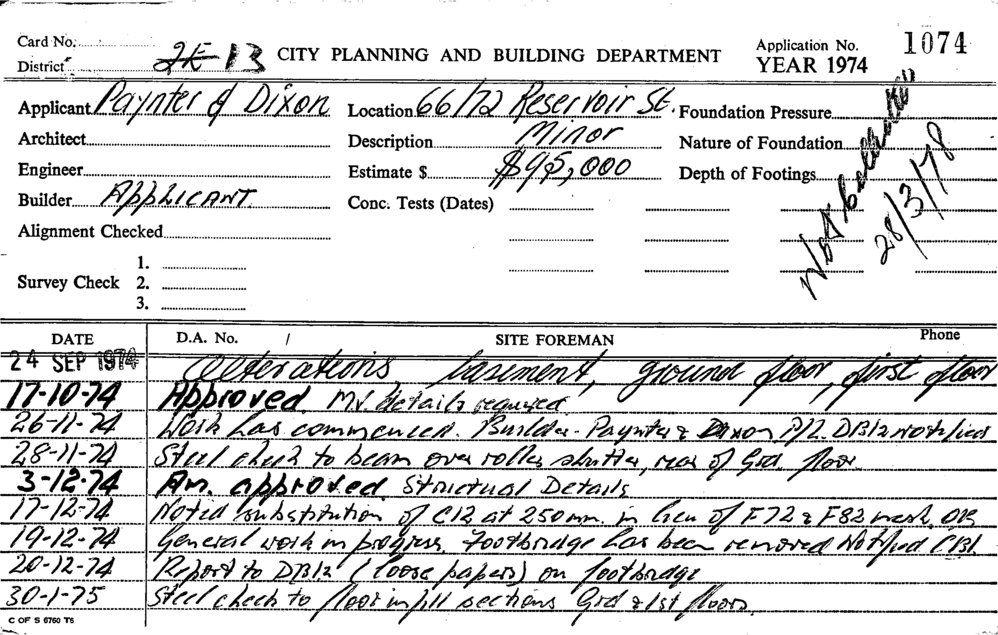 Card No.
District 2E 13 CITY PLANNING AND BUILDING DEPARTMENT Application No. 1074
YEAR 1974
Applicant Paynter & Dixon Location 66/72 Reservoir St. Foundation Pressure
Architect Description Minor Nature of Foundation
Engineer Estimate $ $95,000 Depth of Footings
Builder APPLICANT Conc. Tests (Dates)
Alignment Checked
Survey Check 1.
2.
3.
28/3/78
DATE D.A. No. / SITE FOREMAN Phone
24 SEP 1974 Alterations basement, ground floor, first floor
17-10-74 Approved. Mv. details required.
26-11-74 Work has commenced. Builder- Paynter & Dixon P/L. DB12 Notified
28-11-74 Steel check to beam over roller shutter, rear of Grd. floor.
3-12-74 Am. approved. Structual Details
17-12-74 Noted substitution of C12 at 250mm. in lieu of F72 & F82 mesh. OK
19-12-74 General work in progress. Footbridge has been removed Notified CBI.
20-12-74 Report to DB12 (loose papers) on footbridge
30-1-75 Steel check to floor infill sections Grd & 1st floors.
C OF S 6760 T6